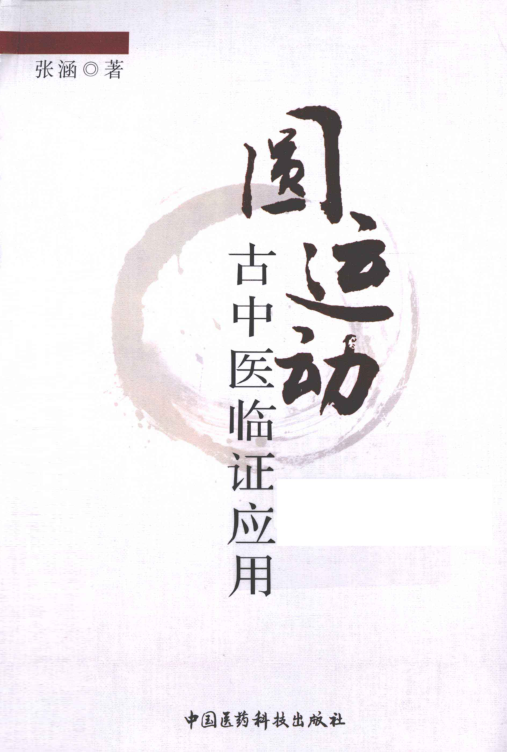 张涵◎著
圆运动
古中医临证应用
中国医药科技出版社